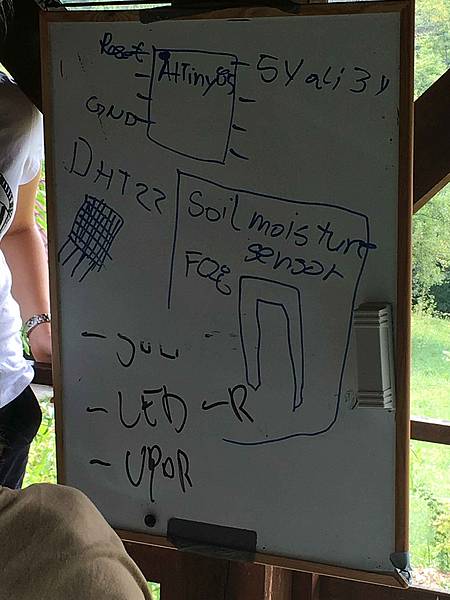 Reset ATTiny85 5V ali 3V
GND
DHT22
Soil moisture
sensor
- LED - R
- UPOR